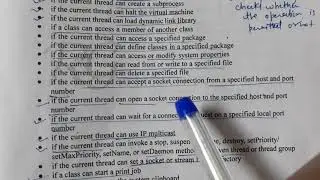 if the current thread can create a subprocess
if the current thread can halt the virtual machine
if the current thread can load dynamic link library
if a class can access a member of another class
if the current thread can access a specified package
if the current thread can define classes in a specified package
if the current thread can access or modify system properties
if the current thread can read from or write to a specified file
if the current thread can delete a specified file
if the current thread can accept a socket connection from a specified host and port
number
if the current thread can open a socket connection to the specified host and port
number
if the current thread can wait for a connection request on a specified local port
number
if the current thread can use IP multicast
if the current thread can invoke a stop, suspend, destroy, setPriority/
setMaxPriority, setName, or setDaemon thread or thread group
if the current thread can set a socket or stream
if a class can start a print job
check whether
the operation is
permitted or not